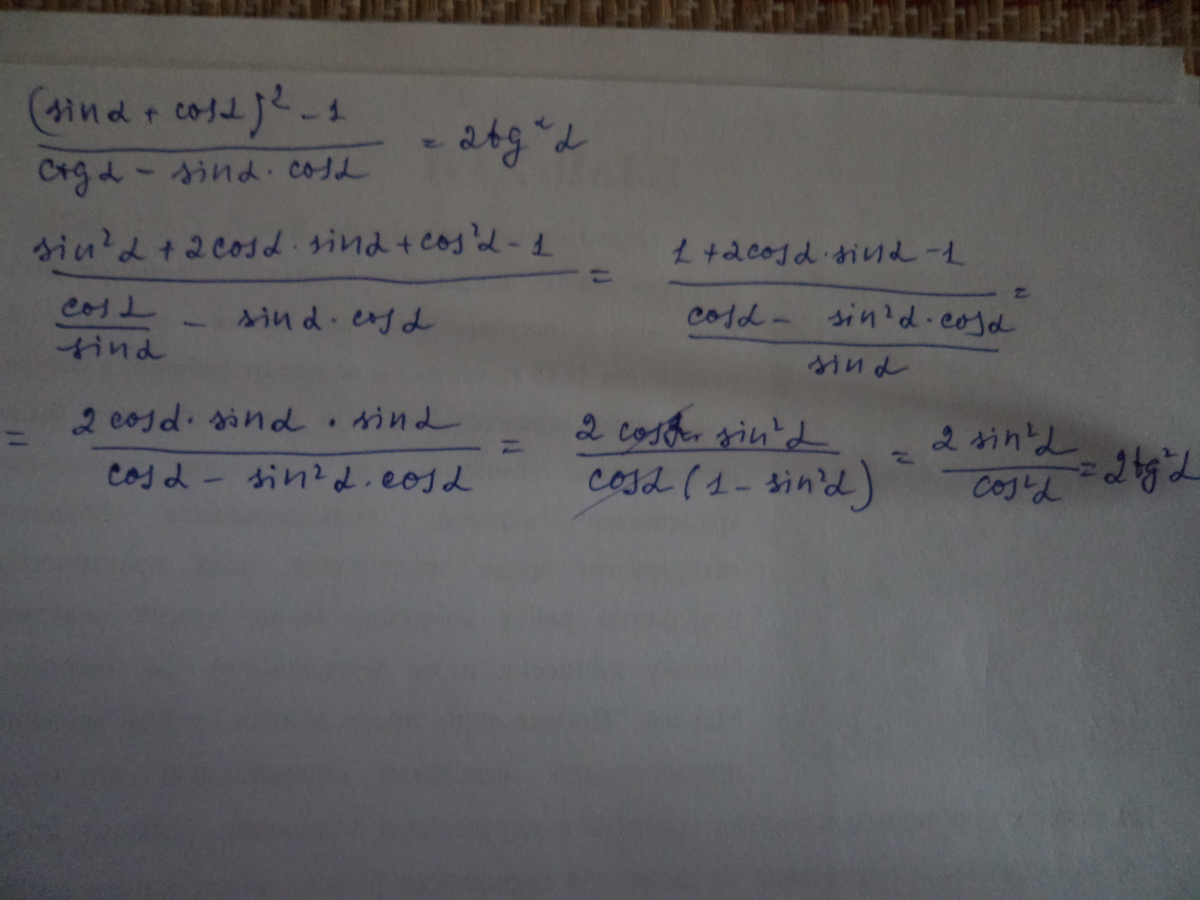 (sinα + cosα)² - 1 / ctgα - sinα · cosα = 2tg²α
sin²α + 2cosα · sinα + cos²α - 1 / cosα/sinα - sinα · cosα = 1 + 2cosα · sinα - 1 / cosα - sin²α · cosα / sinα =
= 2cosα · sinα · sinα / cosα - sin²α · cosα = 2cosα · sin²α / cosα (1 - sin²α) = 2sin²α / cos²α = 2tg²α